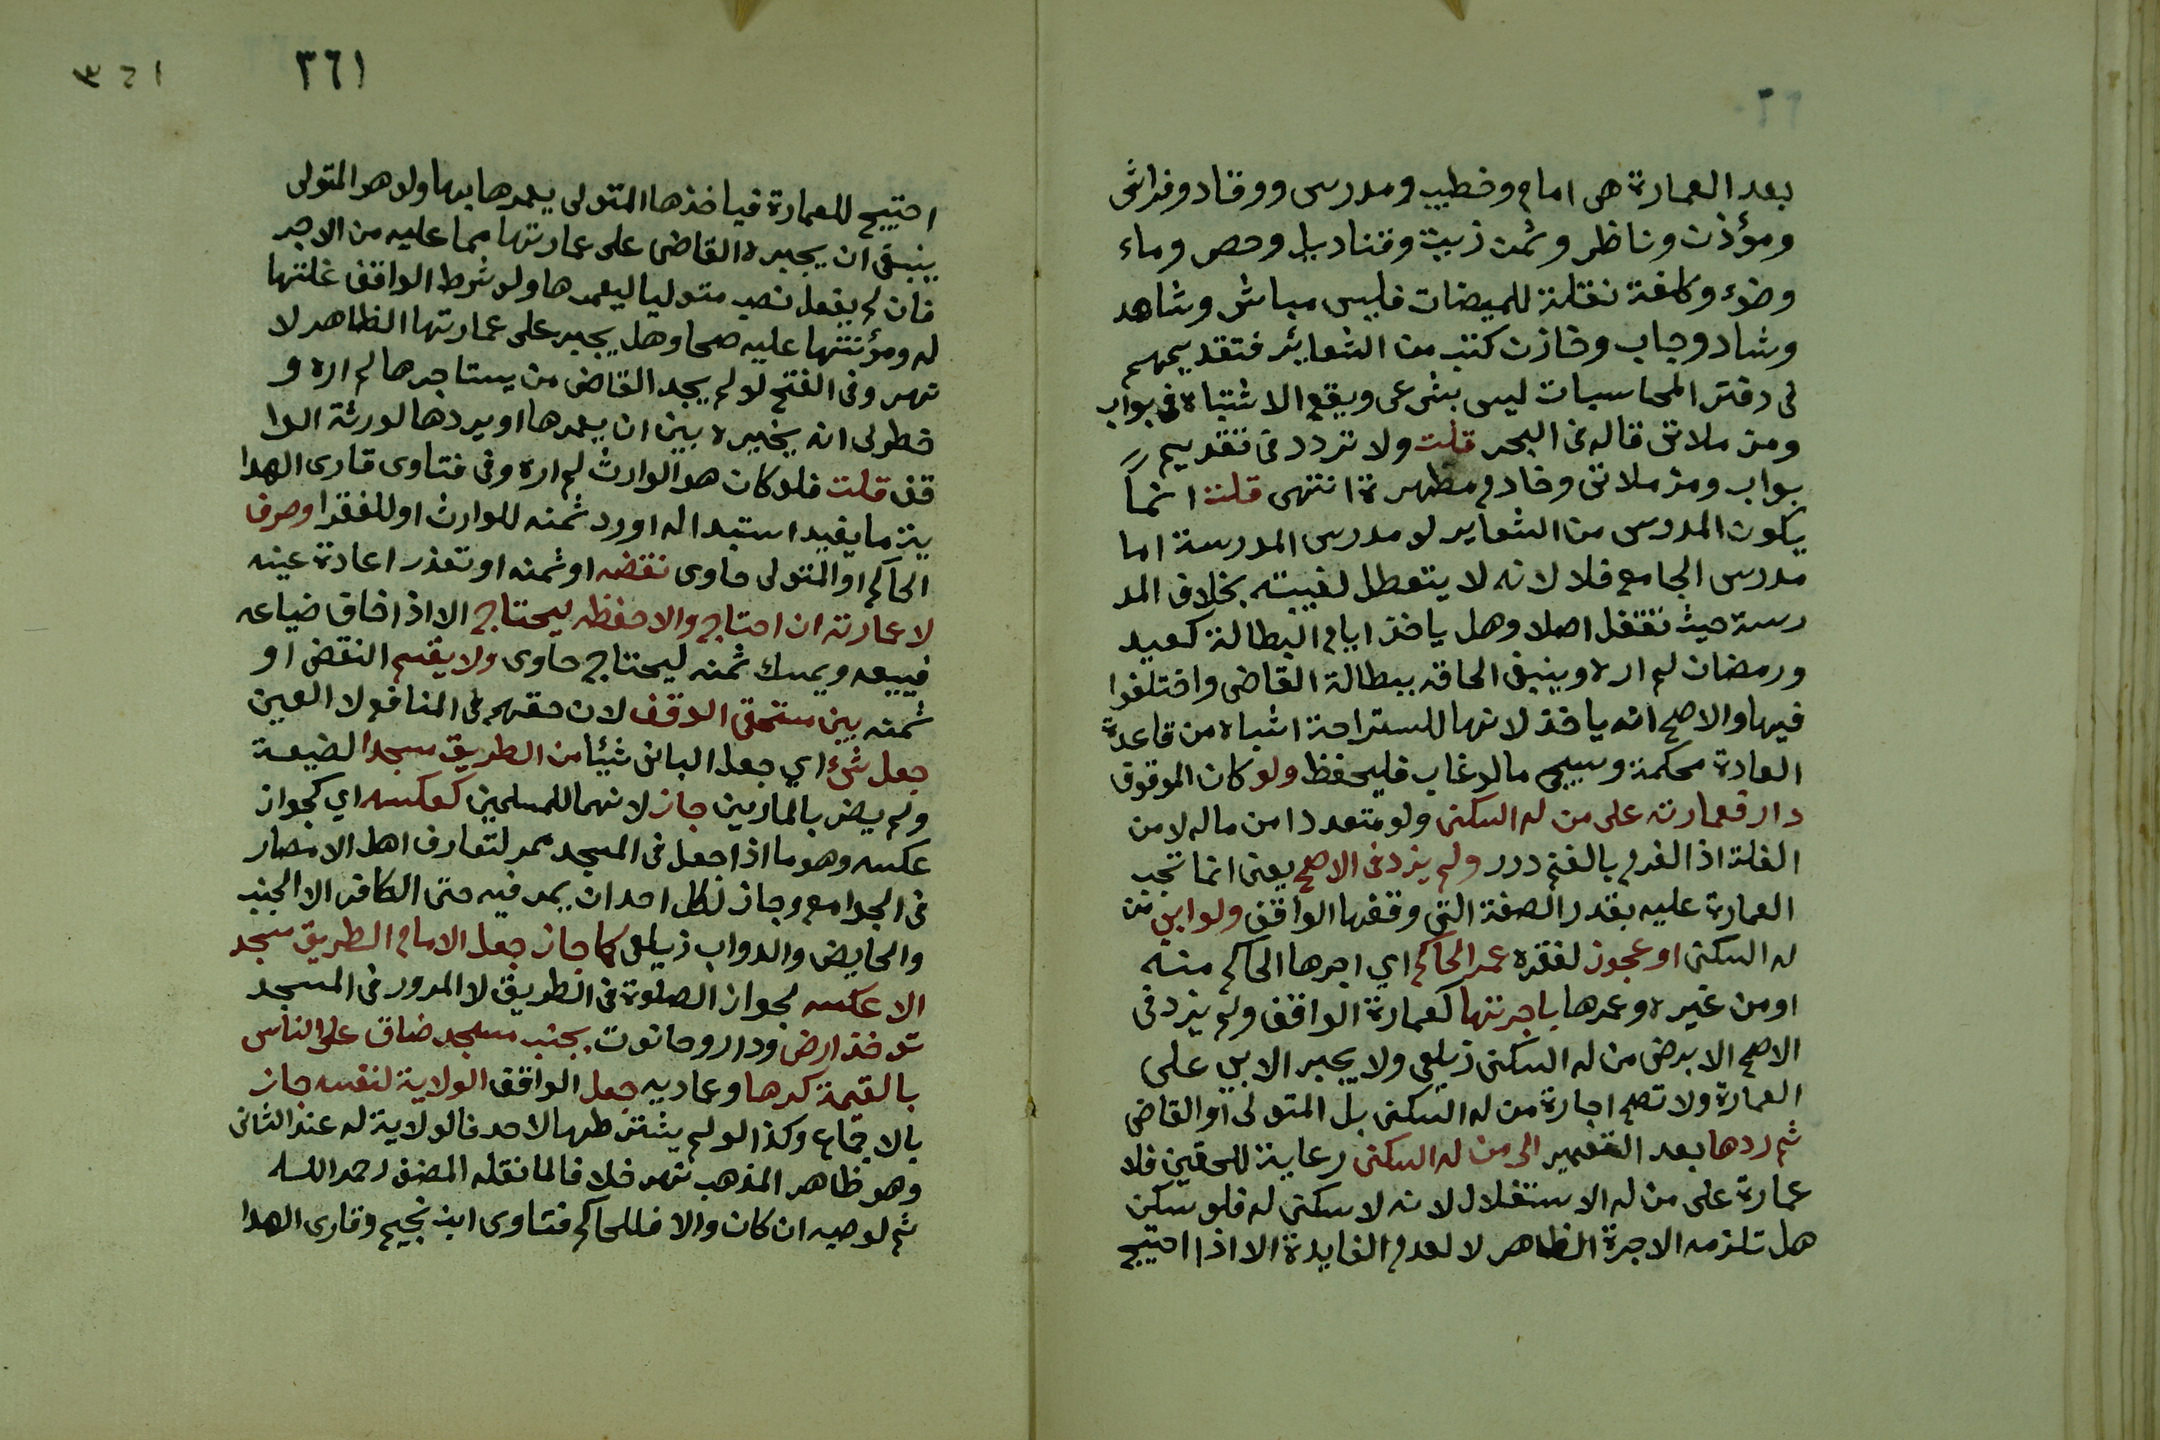 بعد العمارة هى امام وخطيب ومدرس ووقاد وفراش
ومؤذن وناظر وثمن زيت وقناديل وحصر وماء
وضوء وكلفة نقلة للميضات فليس مباشر وشاهد
وشاد وجاب وخازن كتب من الشعائر فتقديمهم
فى دفتر المحاسبات ليس بشرعى ويقع الاشتباه فى بواب
ومزملاتى قاله فى البحر قلت ولا تردد فى تقديم
بواب ومزملاتى وخادم مطهرة انتهى قلت انما
يكون المدرس من الشعاير لو مدرس المدرسة اما
مدرس الجامع فلا لانه لا يتعطل لغيبته بخلاف المد
رسة حيث تقفل اصلا وهل ياخذ ايام البطالة كعيد
ورمضان لم اره وينبغى الحاقه ببطالة القاضى واختلفوا
فيها والاصح انه ياخذ لانها للستراحة اشباه من قاعدة
العادة محكمة وسيجى مالو غاب فليحفظ ولو كان الموقوف
دار فعمارته على من له السكنى ولو متعددا من ماله لا من
الغلة اذ الغرم بالغنم درر ولم يزد فى الاصح يعنى انما تجب
العمارة عليه بقدر الصفة التى وقفها الواقف ولو ابى من
له السكنى او عجز لفقره عمر الحاكم اي اجرها الحاكم منه
او من غيره وعمرها باجرتها كعمارة الواقف ولم يزد فى
الاصح الا برضى من له السكنى زيلعى ولا يجبر الابى على
العمارة ولا تصح اجارة من له السكنى بل المتولى او القاضى
ثم ردها بعد التعمير الى من له السكنى رعاية للحقين فلا
عمارة على من له الاستغلال لانه لا سكنى له فلو سكن
هل تلزمه الاجرة الظاهر لا لعدم الفايدة الا اذا احتيج
٣٦١
٣٦١
احتيج للعمارة فياخذها المتولى يعمرها بها ولو هو المتولى
ينبغى ان يجبره القاضى على عمارتها مما عليه من الاجر
فان لم يفعل نصب متوليا ليعمرها ولو شرط الواقف غلتها
له ومؤنتها عليه صحا وهل يجبر على عمارتها الظاهر لا
نهر وفى الفتح لو لم يجد القاضى من يستاجرها لم اره و
خطر لى انه يخيره بين ان يعمرها او يردها لورثة الوا
قف قلت فلو كان هو الوارث لم اره وفى فتاوى قارى الهدا
ية ما يفيد استبداله او رد ثمنه للوارث او للفقرا وصرف
الحاكم او المتولى حاوى نقضه او ثمنه او تعذر اعادة عينه
لا عمارته ان احتاج والا حفظه ليحتاج الا اذا خاف ضياعه
فيبيعه ويمسك ثمنه ليحتاج حاوى ولا يقسم النقض او
ثمنه بين مستحقى الوقف لان حقهم فى المنافع لا العين
جعل شئ اي جعل البانى شيئا من الطريق مسجدا لضيعة
ولم يضر بالمارين جاز لانهما للمسلمين كعكسه اي كجواز
عكسه وهو ما اذا جعل فى المسجد ممر لتعارف اهل الامصار
فى الجوامع وجاز لكل احد ان يمر فيه حتى الكافر الا الجنب
والحايض والدواب زيلعى كما جاز جعل الامام الطريق مسجد
الا عكسه لجواز الصلوة فى الطريق لا المرور فى المسجد
توخذ ارض ودار وحانوت بجنب مسجد ضاق على الناس
بالقيمة كرها وعماديه جعل الواقف الولاية لنفسه جاز
بالاجماع وكذا لو لم يشترطها لاحد فالولاية له عند الثانى
وهو ظاهر المذهب نهر خلافا لما نقله المصنف رحمه الله
ثم لوصيه ان كان والا فللحاكم فتاوى ابن نجيم وقارى الهدا